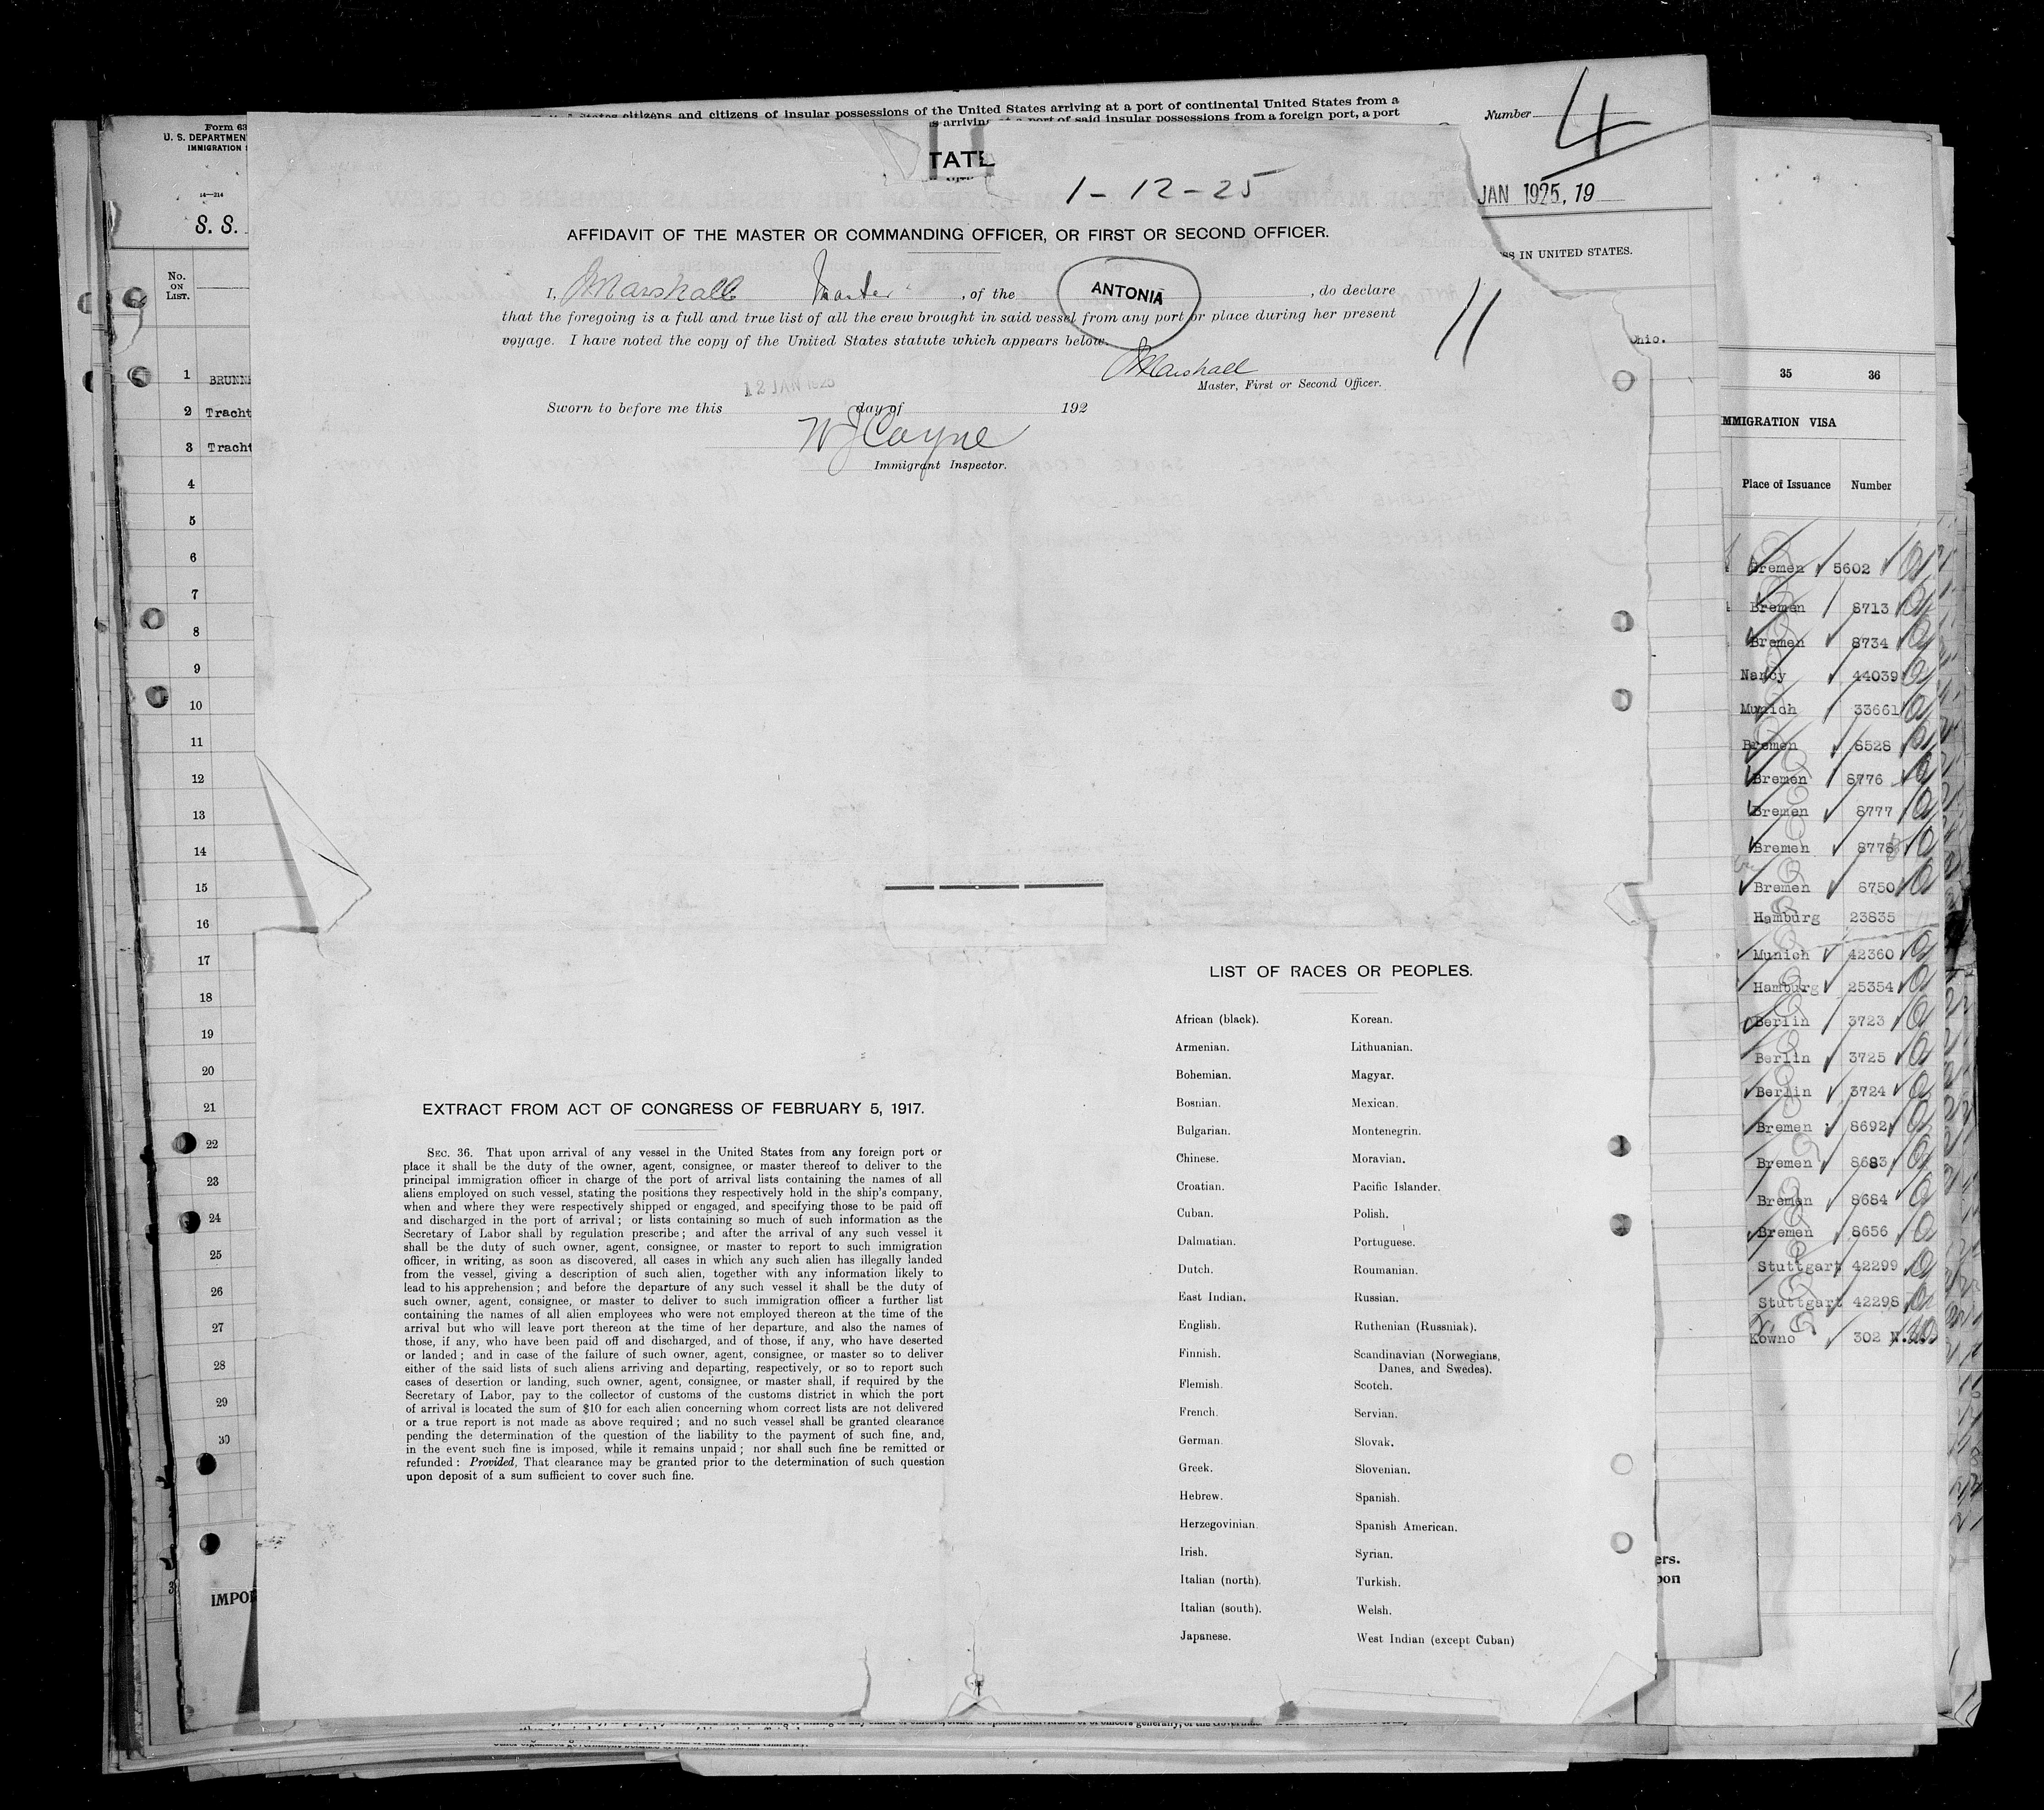 States citizens and citizens of insular possessions of the United States arriving at a port of continental United States from a
port of said insular possessions from a foreign port, a port
Number 4
Form 63
U. S. DEPARTMENT
IMMIGRATION
14—214
S. S.
TATE
1-12-25
JAN 1925, 19
IN UNITED STATES.
AFFIDAVIT OF THE MASTER OR COMMANDING OFFICER, OR FIRST OR SECOND OFFICER.
I, Marshall Master, of the ANTONIA, do declare
that the foregoing is a full and true list of all the crew brought in said vessel from any port or place during her present
voyage. I have noted the copy of the United States statute which appears below.
11
Ohio.
Marshall
Master, First or Second Officer.
12 JAN 1925
Sworn to before me this day of 192
W J Coyne
Immigrant Inspector.
No.
ON
LIST.
1 BRUNN
2 Tracht
3 Tracht
4
5
6
7
8
9
10
11
12
13
14
15
16
17
18
19
20
21
22
23
24
25
26
27
28
29
30
3
IMPO
EXTRACT FROM ACT OF CONGRESS OF FEBRUARY 5, 1917.
SEC. 36. That upon arrival of any vessel in the United States from any foreign port or
place it shall be the duty of the owner, agent, consignee, or master thereof to deliver to the
principal immigration officer in charge of the port of arrival lists containing the names of all
aliens employed on such vessel, stating the positions they respectively hold in the ship's company,
when and where they were respectively shipped or engaged, and specifying those to be paid off
and discharged in the port of arrival; or lists containing so much of such information as the
Secretary of Labor shall by regulation prescribe; and after the arrival of any such vessel it
shall be the duty of such owner, agent, consignee, or master to report to such immigration
officer, in writing, as soon as discovered, all cases in which any such alien has illegally landed
from the vessel, giving a description of such alien, together with any information likely to
lead to his apprehension; and before the departure of any such vessel it shall be the duty of
such owner, agent, consignee, or master to deliver to such immigration officer a further list
containing the names of all alien employees who were not employed thereon at the time of the
arrival but who will leave port thereon at the time of her departure, and also the names of
those, if any, who have been paid off and discharged, and of those, if any, who have deserted
or landed; and in case of the failure of such owner, agent, consignee, or master so to deliver
either of the said lists of such aliens arriving and departing, respectively, or so to report such
cases of desertion or landing, such owner, agent, consignee, or master shall, if required by the
Secretary of Labor, pay to the collector of customs of the customs district in which the port
of arrival is located the sum of $10 for each alien concerning whom correct lists are not delivered
or a true report is not made as above required; and no such vessel shall be granted clearance
pending the determination of the question of the liability to the payment of such fine, and,
in the event such fine is imposed, while it remains unpaid; nor shall such fine be remitted or
refunded: Provided, That clearance may be granted prior to the determination of such question
upon deposit of a sum sufficient to cover such fine.
LIST OF RACES OR PEOPLES.
African (black). Korean.
Armenian. Lithuanian.
Bohemian. Magyar.
Bosnian. Mexican.
Bulgarian. Montenegrin.
Chinese. Moravian.
Croatian. Pacific Islander.
Cuban. Polish.
Dalmatian. Portuguese.
Dutch. Roumanian.
East Indian. Russian.
English. Ruthenian (Russniak).
Finnish. Scandinavian (Norwegians,
Danes, and Swedes).
Flemish. Scotch.
French. Servian.
German. Slovak.
Greek. Slovenian.
Hebrew. Spanish.
Herzegovinian. Spanish American.
Irish. Syrian.
Italian (north). Turkish.
Italian (south). Welsh.
Japanese. West Indian (except Cuban)
ers.
pon
35 36
MMIGRATION VISA
Place of Issuance Number
Bremen 5602
Bremen 8713
Bremen 8734
Nancy 44039
Munich 33661
Bremen 8528
Bremen 8776
Bremen 8777
Bremen 8778
Bremen 8750
Hamburg 23835
Munich 42360
Hamburg 25354
Berlin 3723
Berlin 3725
Berlin 3724
Bremen 8692
Bremen 8683
Bremen 8684
Bremen 8656
Stuttgart 42299
Stuttgart 42298
Kowno 302